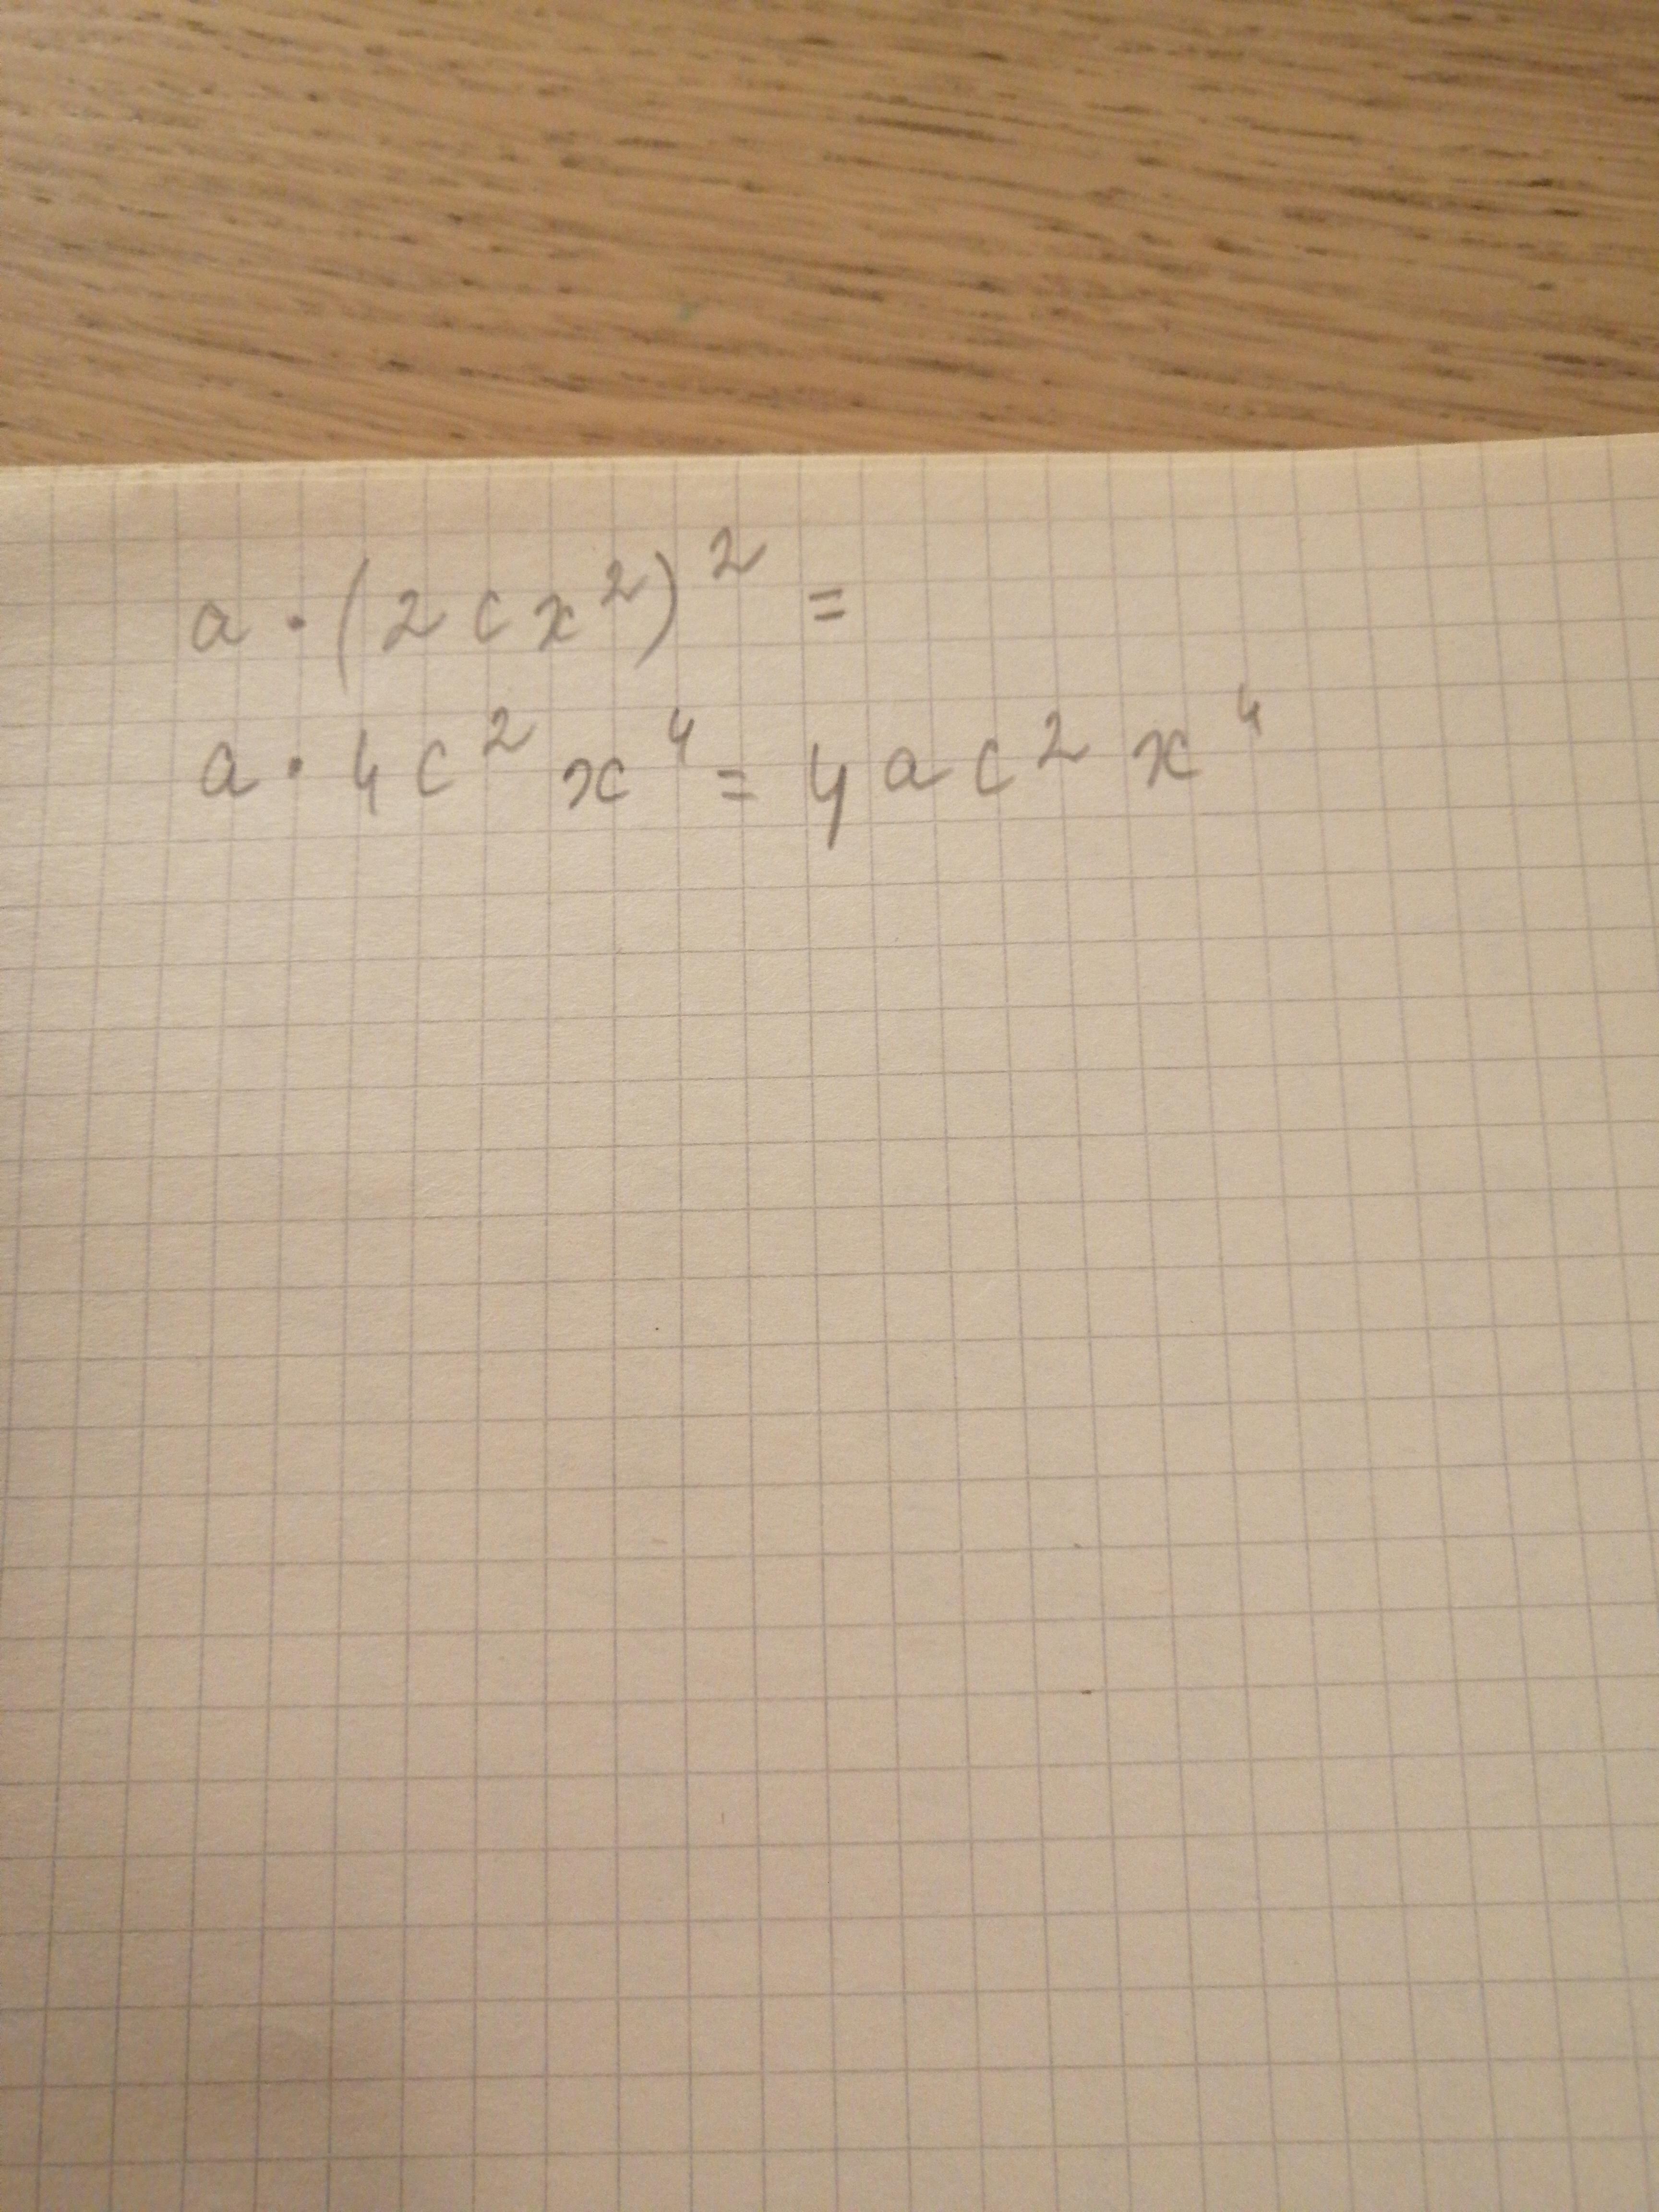 a · (2cx²)² =
a · 4c²x⁴ = 4ac²x⁴